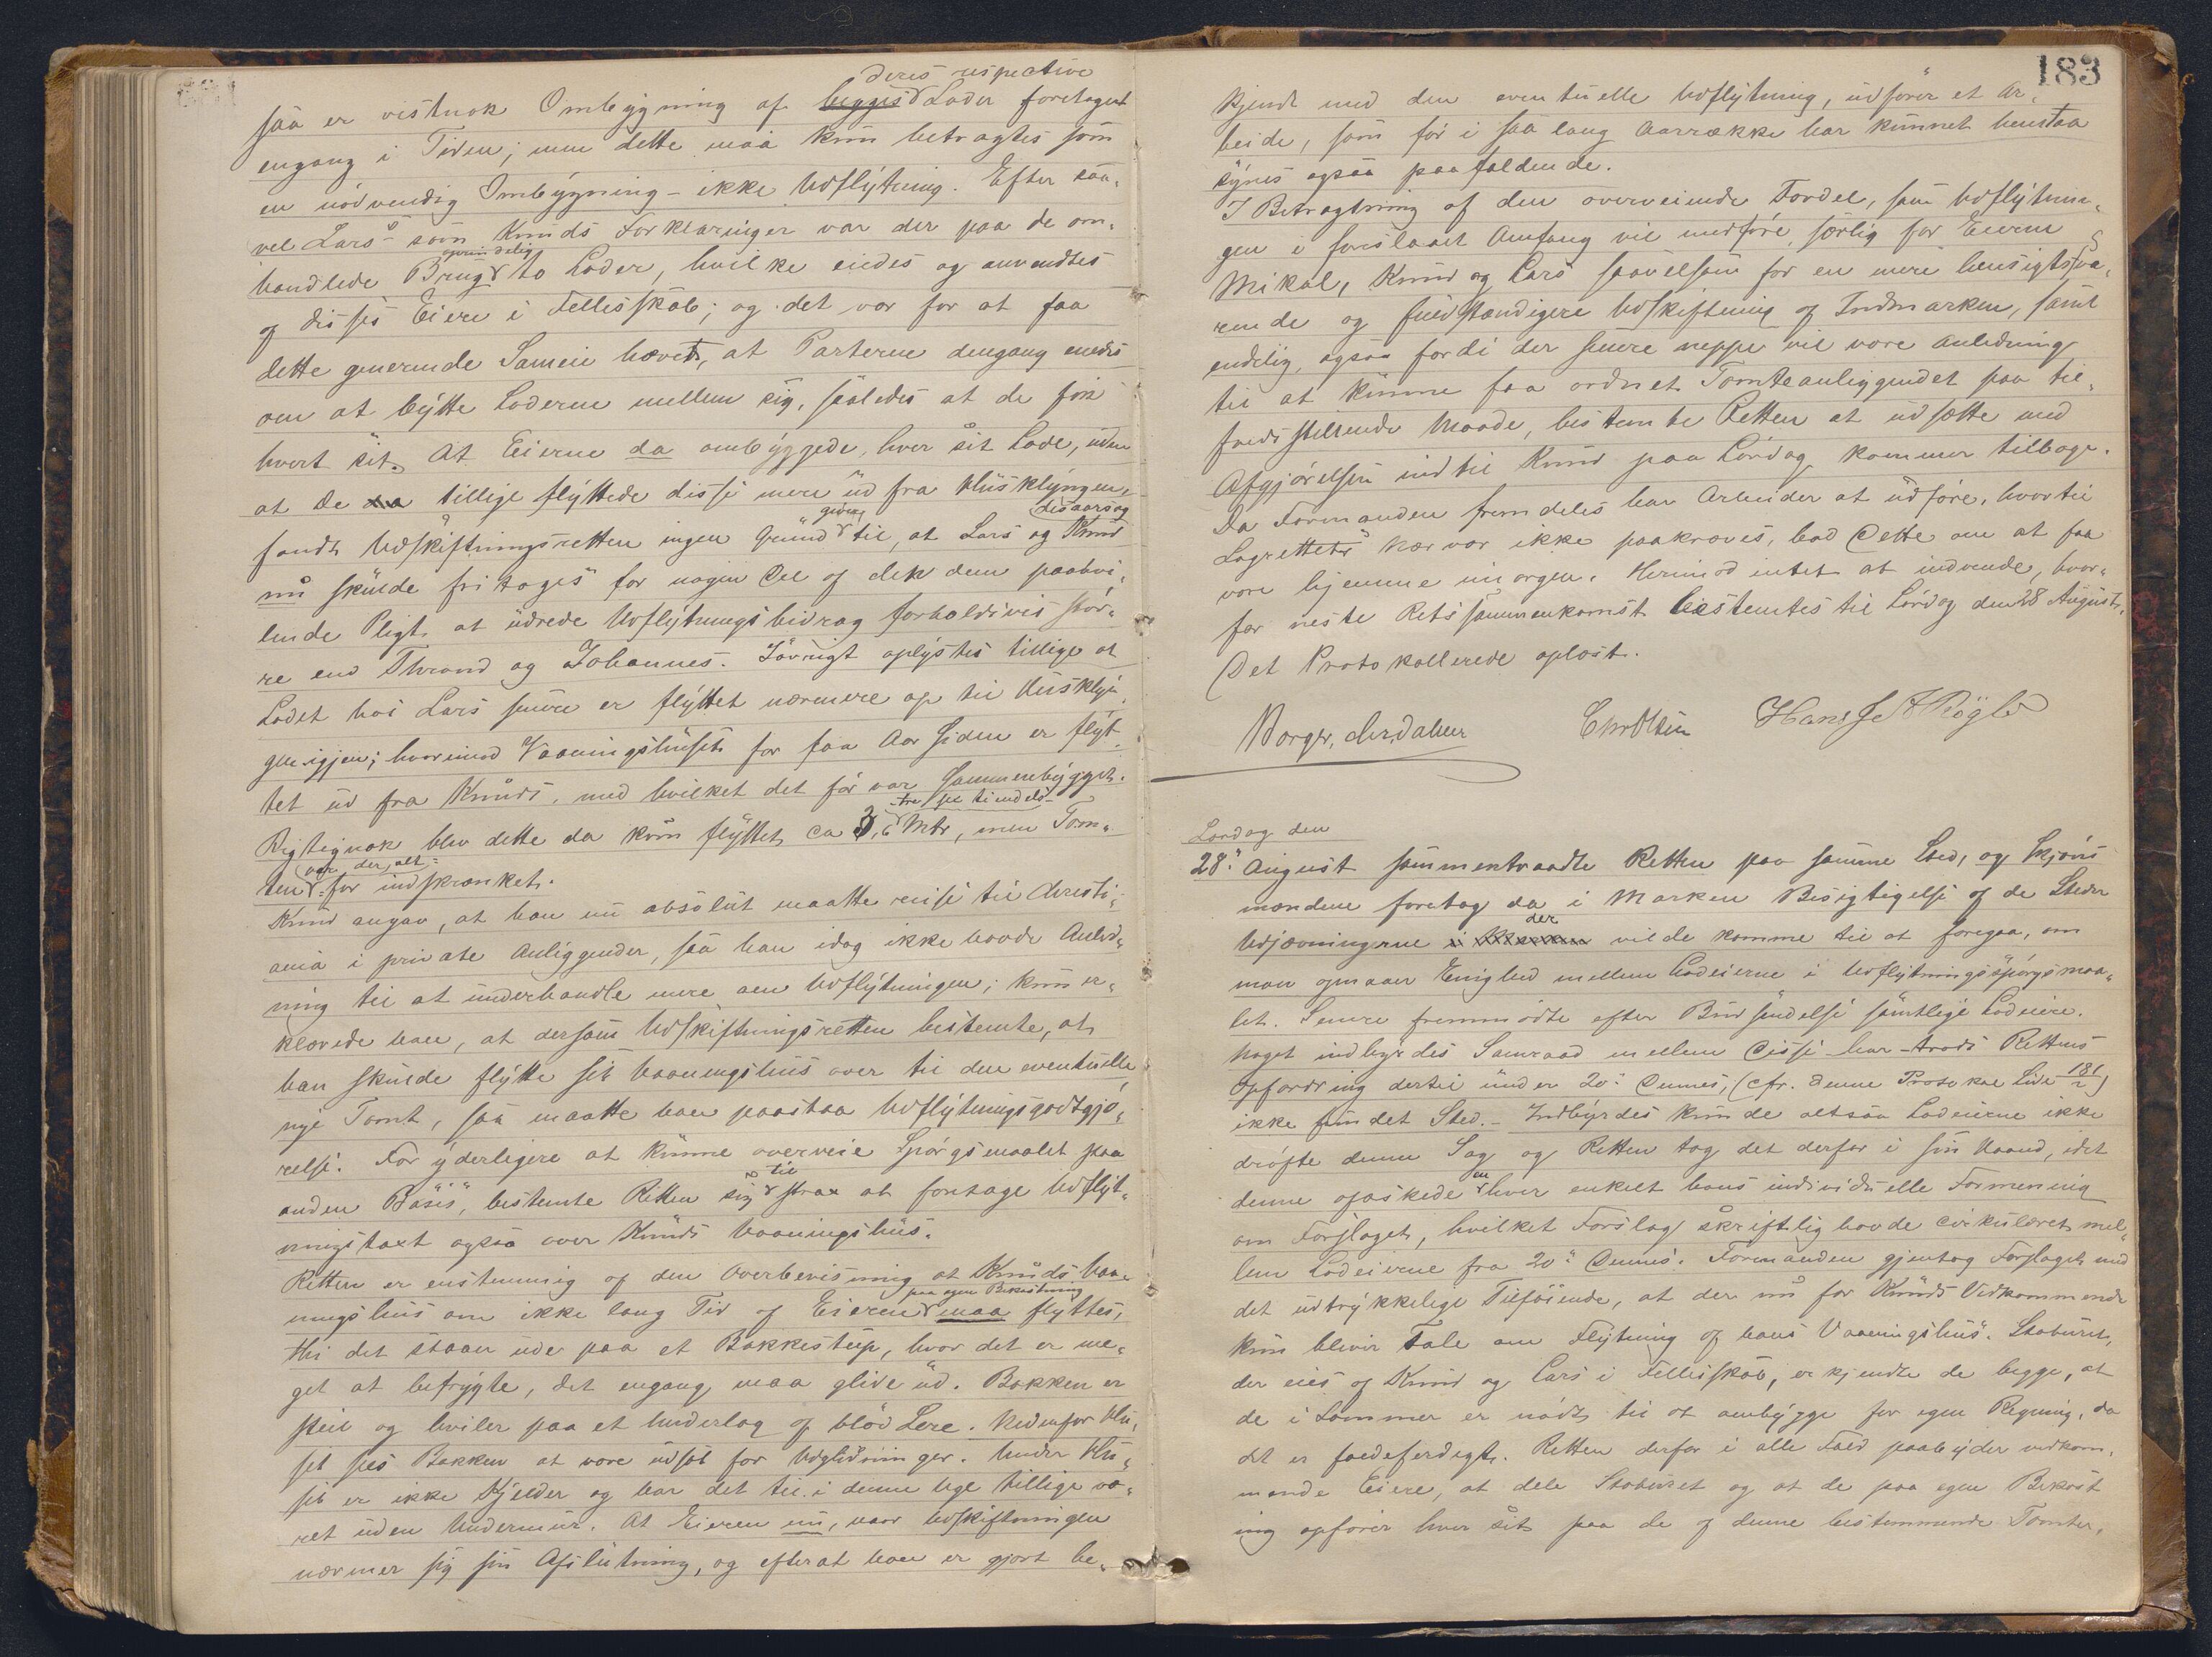 deres respective
saa er vistnok Ombygning af begges Lader foretaget
engang i Tiden; men dette maa kun betragtes som
en nödvendig Ombygning – ikke Udflytning. Efter saa-
vel Lars's som Knuds Forklaringer var der paa de om-
oprindelig
handlede Brug to Lader, hvilke eiedes og anvendtes
af disses Eiere i Fellesskab; og det var for at faa
dette generende Sameie hævet, at Parterne dengang enedes
om at bytte Laderne mellem sig, saaledes at de fik
hvert sit. At Eierne da ombyggede, hver sit Lade, uden
at de tillige flyttede disse mere ud fra Husklyngen,
gyldig des aarsag
fandt Udskiftningsretten ingen Grund til, at Lars og Knud
nu skulde fritages for nogen Del af dek dem paahvi-
lende Pligt at udrede Udflytningsbidrag forholdsvis stör-
re end Thrond og Johannes. Iövrigt oplystes tillige at
Ladet hos Lars senere er flyttet nærmere op til Husklyn-
gen igjen; hvorimod Vaaningshuset for faa Aar siden er flyt-
tet ud fra Knuds, med hvilket det för var sammenbygget.
tre sex tiendels
Rigtignok blev dette da kun flyttet ca 3,6 Mtr, men Tom-
var der alt
ten för indskrænket.
Knud angav, at han nu absolut maatte reise til Christi-
ania i private Anliggender, saa han idag ikke havde Anled-
ning til at underhandle mere om Udflytningen; kun er-
klærede han, at dersom Udskiftningsretten bestemte, at
han skulde flytte sit Vaaningshus over til den eventuelle
nye Tomt, saa maatte han paastaa Udflytningsgodtgjö-
relse. For yderligere at kunne overveie Spörgsmaalet paa
til
anden "Basis", bestemte Retten sig strax at foretage Udflyt-
ningstaxt ogsaa over Knuds Vaaningshus.
Retten er enstemmig af den Overbevisning at Knuds Vaa-
paa egen Bekostning
ningshus om ikke lang Tid af Eieren maa flyttes,
thi det staaer ude paa et Bakkestup, hvor det er me-
get at befrygte, det engang maa glide ud. Bakken er
steil og hviler paa et Underlag af blöd Lere. Nedenfor Hu-
set sees Bakken at være udsat for Udglidninger. Under Hu-
set er ikke Kjelder og har det til i denne Uge tillige væ-
ret uden Undermur. At Eieren nu, naar Udskiftningen
nærmer sig sin Afslutning, og efterat han er gjort be-
183
kjendt med den eventuelle Udflytning, udförer et Ar-
beide, som för i saa lang Aarrække har kunnet henstaa
synes ogsaa paafaldende.
I Betragtning af den overveiende Fordel, som Udflytnin-
gen i foreslaaet Omfang vil medföre, særlig for Eierne
Mikal, Knud og Lars saavelsom for en mere hensigtssva-
rende og fuldstændigere Udskiftning af Indmarken, samt
endelig ogsaa fordi der senere neppe vil være Anledning
til at kunne faa ordnet Tomteanliggendet paa til-
fredsstillende Maade, bestemte Retten at udsætte med
Afgjörelsen indtil Knud paa Lördag kommer tilbage.
Da Formanden fremdeles har Arbeider at udföre, hvortil
Lagrettets Nærvær ikke paakræves, bad dette om at faa
være hjemme imorgen. Herimod intet at indvende, hvor-
for neste Retssammenkomst bestemtes til Lördag den 28 August.
Det Protokollerede oplæst.
Chr Olsen Hans
Lordag den
28: August sammentraadte Retten paa samme Sted, og Skjöns-
mændene foretog da i Marken Besigtigelse af de Steder
der
Udjævningerne vilde komme til at foregaa, om
man opnaaer Enighed mellem Lodeierne i Udflytningsspörgsmaa-
let. Senere fremmödte efter Budsendelse samtlige Lodeiere.
Noget indbyrdes Samraad mellem disse har – trods Rettens
Opfordring dertil under 20: Dennes, (cfr. denne Protokol Side 181/2)
ikke fundet Sted. – Indbyrdes kunde altsaa Lodeierne ikke
dröfte denne Sag og Retten tog det derfor i sin Haand, idet
en
denne opæskede hver enkelt hans individuelle Formening
om Forslaget, hvilket Forslag skriftlig havde cirkuleret mel-
lem Lodeierne fra 20: Dennes. Formanden gjentog Forslaget med
det udtrykkelige Tilföiende, at der nu for Knuds Vedkommende
kun bliver Tale om Flytning af hans Vaaningshus. Staburet,
der eies af Knud og Lars i Fellesskab, erkjendte de begge, at
de i Sommer er nödt til at ombygge for egen Regning, da
det er faldeferdigt. Retten derfor i alle Fald paabyder vedkom-
mende Eiere, at dele Staburet og at de paa egen Bekost-
ing opförer hver sit paa de af denne bestemmende Tomter,